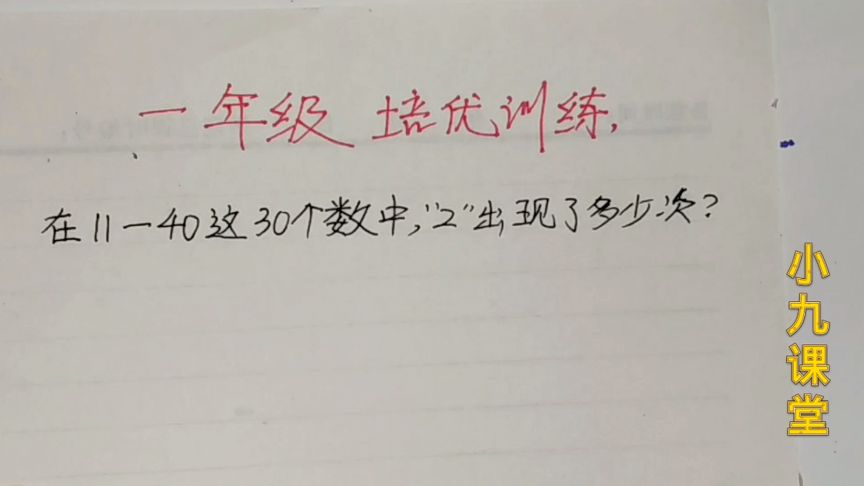 一年级 培优训练,
在11—40这30个数中,"2"出现了多少次?
小九课堂